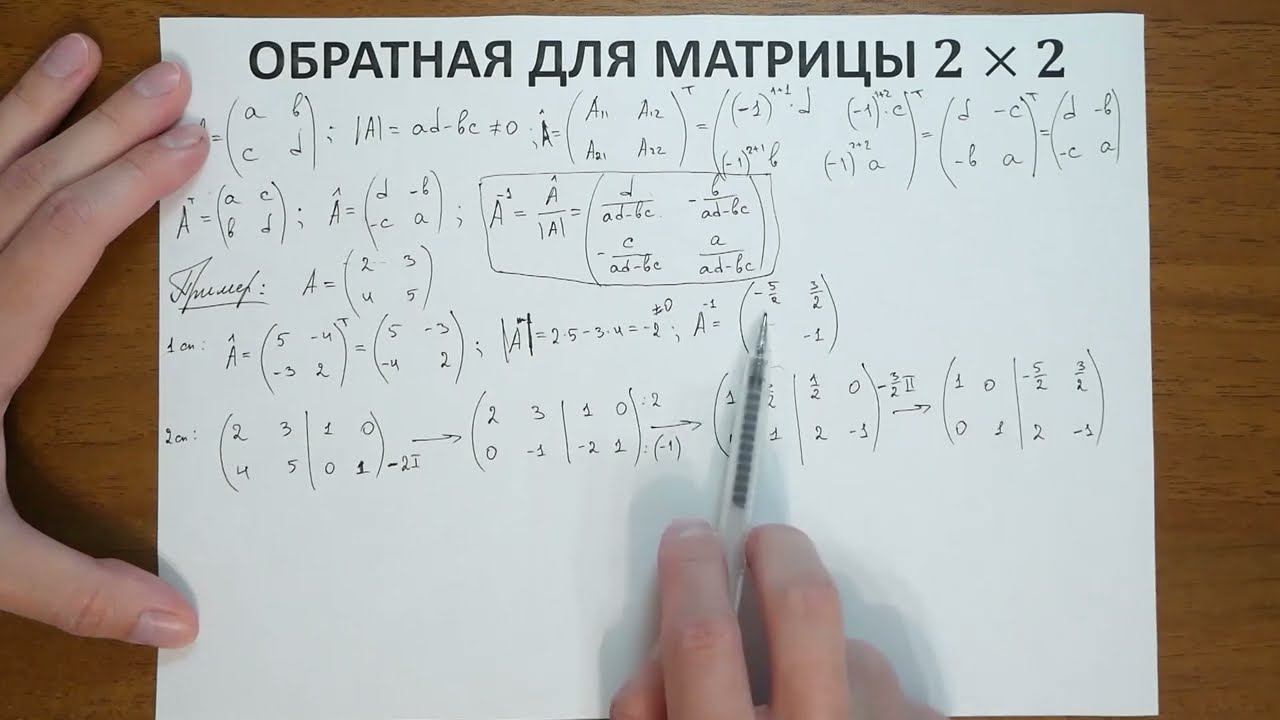 ОБРАТНАЯ ДЛЯ МАТРИЦЫ 2 × 2
= (a b; c d); |A| = ad-bc ≠ 0; Â = (A₁₁ A₁₂; A₂₁ A₂₂)ᵀ = ((-1)¹⁺¹·d (-1)¹⁺²·c; (-1)²⁺¹b (-1)²⁺²a)ᵀ = (d -c; -b a)ᵀ = (d -b; -c a)
Aᵀ = (a c; b d); Â = (d -b; -c a); A⁻¹ = Â/|A| = (d/(ad-bc) -b/(ad-bc); -c/(ad-bc) a/(ad-bc))
Пример: A = (2 3; 4 5)
1 сп: Â = (5 -4; -3 2)ᵀ = (5 -3; -4 2); |A| = 2·5-3·4 = -2 ≠0; A⁻¹ = (-5/2 3/2; -1)
2 сп: (2 3 | 1 0; 4 5 | 0 1) -2I → (2 3 | 1 0; 0 -1 | -2 1) :2 :(-1) → (1 | 1/2 0; 1 | 2 -1) -3/2 II → (1 0 | -5/2 3/2; 0 1 | 2 -1)